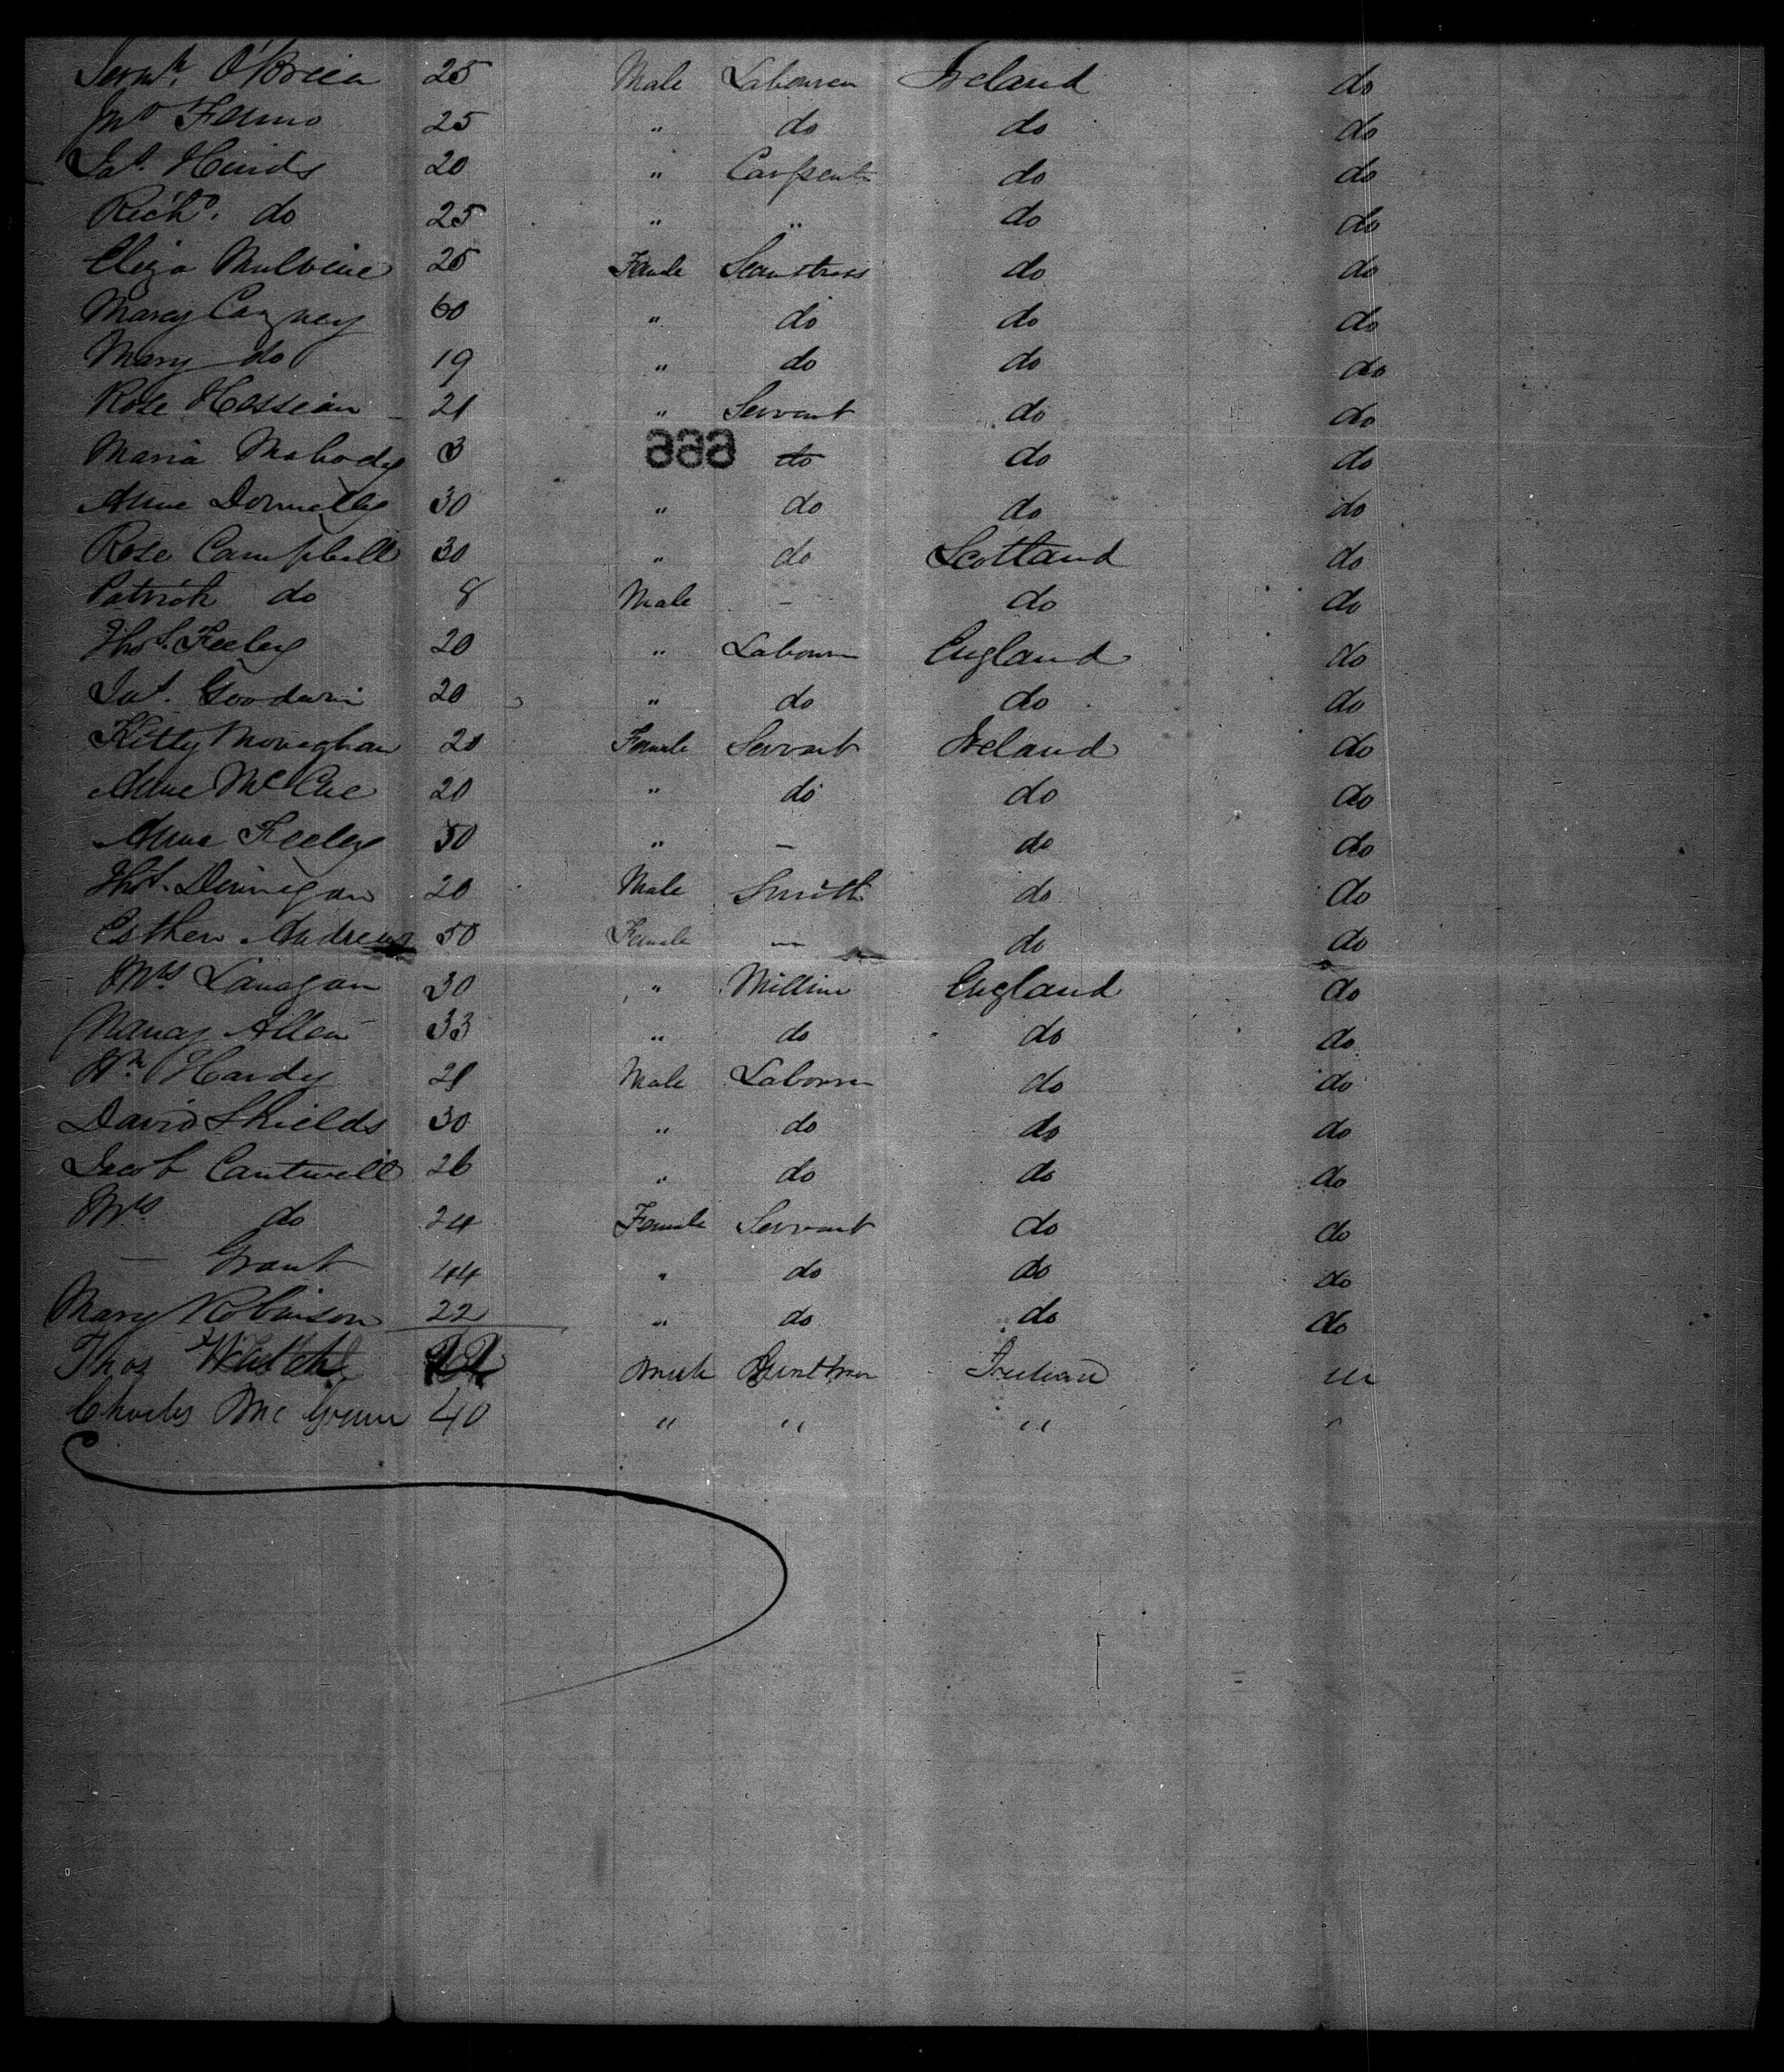 Jerem.h O'Brien 25 Male Labourer Ireland do
Jno 25 " do do do
Jas. Hinds 20 " Carpent do do
Richd. do 25 " " do do
Eliza 25 Female Seamstress do do
Mary 60 " do do do
Mary do 19 " do do do
Rose Hessian 21 " Servant do do
Maria Mabody 3 do do do
Anne Donnelly 30 " do do do
Rose Campbell 30 " do Scotland do
Patrick do 8 Male - do do
Thos. Feeley 20 " Labourer England do
Jas. Goodwin 20 " do do do
Kitty Monaghan 20 Female Servant Ireland do
Anne McCue 20 " do do do
Anne Feeley 50 " - do do
Thos. Dinnegan 20 Male Smith do do
Esther Andrews 50 Female - do do
Mrs. Lanagan 30 " Milliner England do
Nancy Allen 33 " do do do
Wm Hardy 21 Male Labourer do do
David Shields 30 " do do do
Jacob Cantwell 26 " do do do
Mrs. do 24 Female Servant do do
- Grant 44 " do do do
Mary Robinson 22 " do do do
Thos Male
Charles Mc 40 " " " "